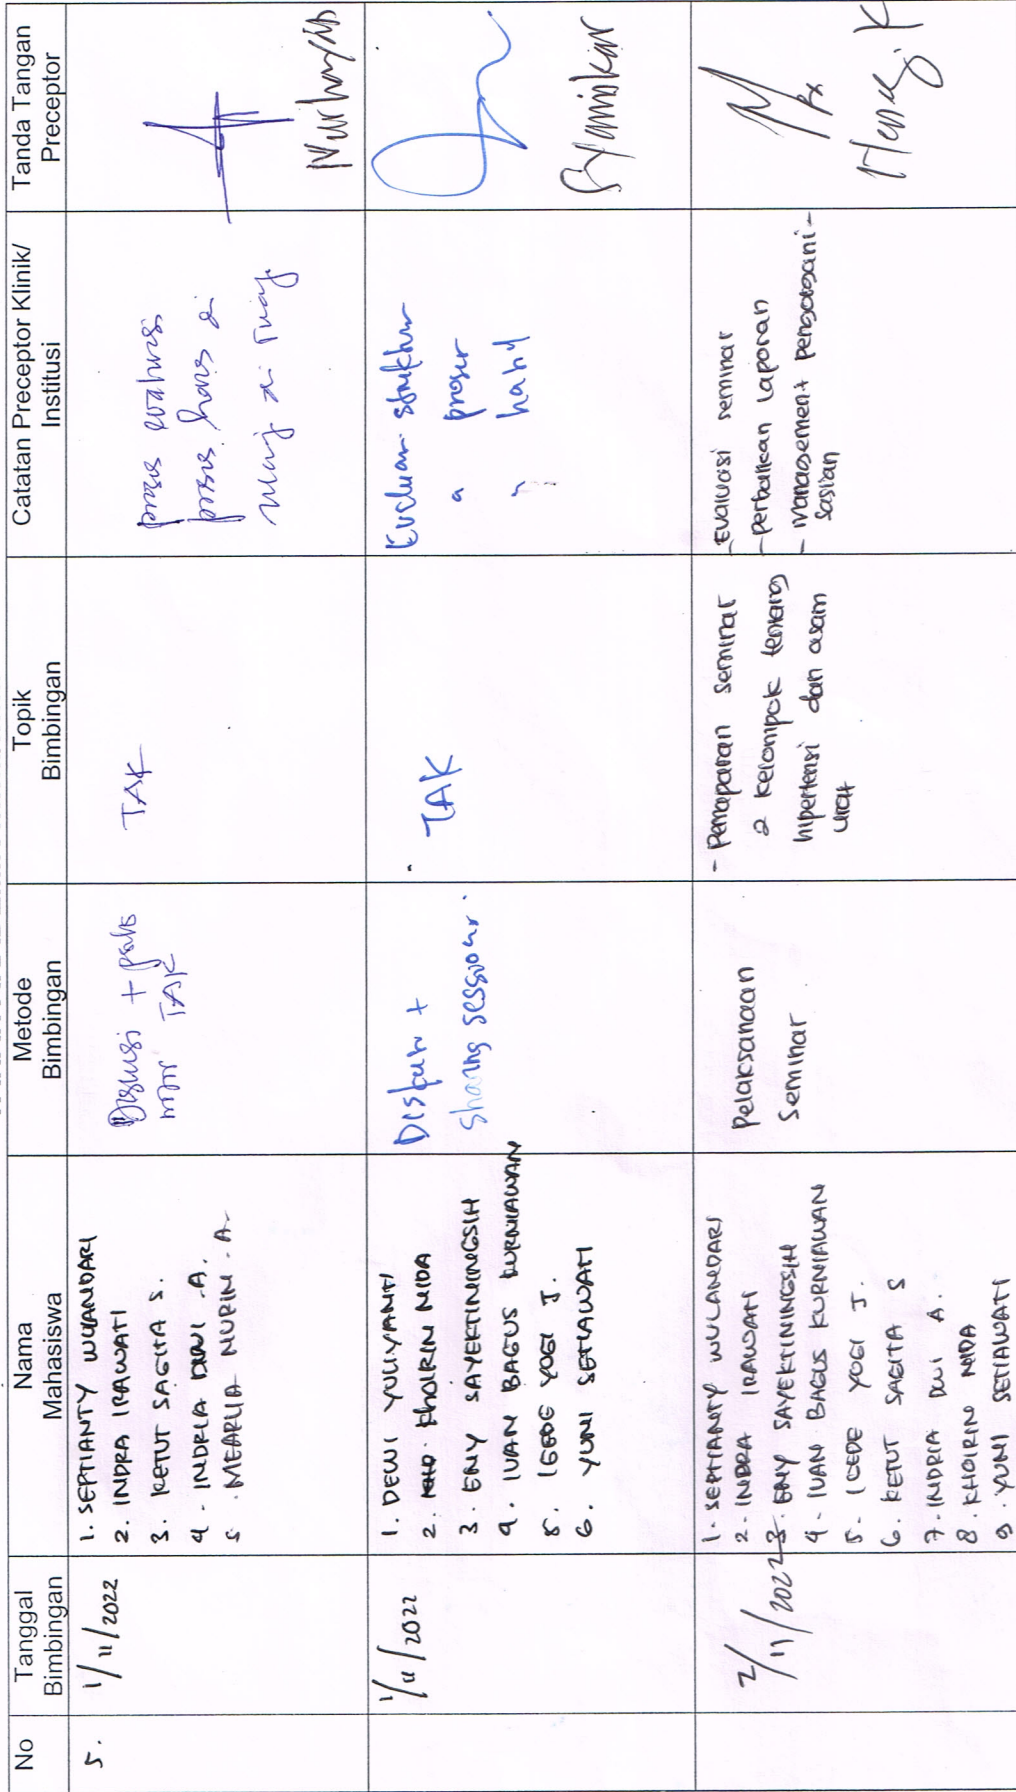 No
Tanggal
Bimbingan
Nama
Mahasiswa
Metode
Bimbingan
Topik
Bimbingan
Catatan Preceptor Klinik/
Institusi
Tanda Tangan
Preceptor
5.
1/11/2022
1. SEPTIANTY WULANDARI
2. INDRA IRAWATI
3. KETUT SAGITA S.
4. INDRIA DWI .A.
5. MEARLIA NURIN .A.
Diskusi +
TAK
TAK
proses evaluasi
proses harus di
di ruang
1/11/2022
1. DEWI YULIYANTI
2. KHOIRIN NIDA
3. ENY SAYEKTININGSIH
4. IVAN BAGUS KURNIAWAN
5. IGEDE YOGI J.
6. YUNI SETIAWATI
Diskusi +
sharing session.
TAK
Evaluasi struktur
" proses
" hasil
Syamsikar
2/11/2022
1. SEPTIANTY WULANDARI
2. INDRA IRAWATI
3. ENY SAYEKTININGSIH
4. IVAN BAGUS KURNIAWAN
5. IGEDE YOGI J.
6. KETUT SAGITA S
7. INDRIA DWI A.
8. KHOIRIN NIDA
9. YUNI SETIAWATI
Pelaksanaan
Seminar
- Pemaparan seminar
2 kelompok tentang
hipertensi dan asam
urat
- Evaluasi seminar
- perbaikan laporan
- management pengorgani-
sasian